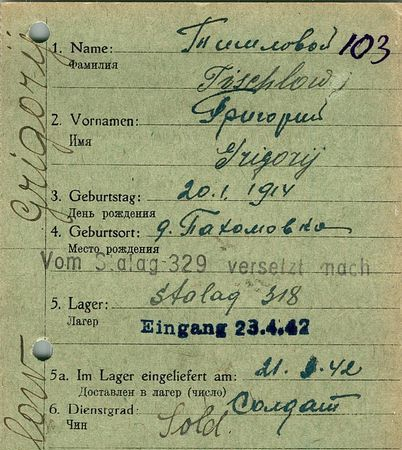 103
1. Name: Тишловой
Фамилия
Tischlow
2. Vornamen: Григорий
Имя
Grigorij
3. Geburtstag: 20.1.1914
День рождения
4. Geburtsort: д. Пахомовка
Место рождения
Vom Stalag 329 versetzt nach
5. Lager: Stalag 318
Лагерь
Eingang 23.4.42
5a. Im Lager eingeliefert am: 21. 42
Доставлен в лагерь (число)
6. Dienstgrad: Солдат
Чин
Sold.
Grigorij
low